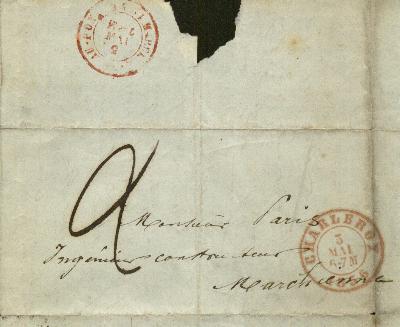 MAI
2
Monsieur Paris
Ingénieur constructeur
Marchienne
CHARLEROY
3
MAI
6-7M